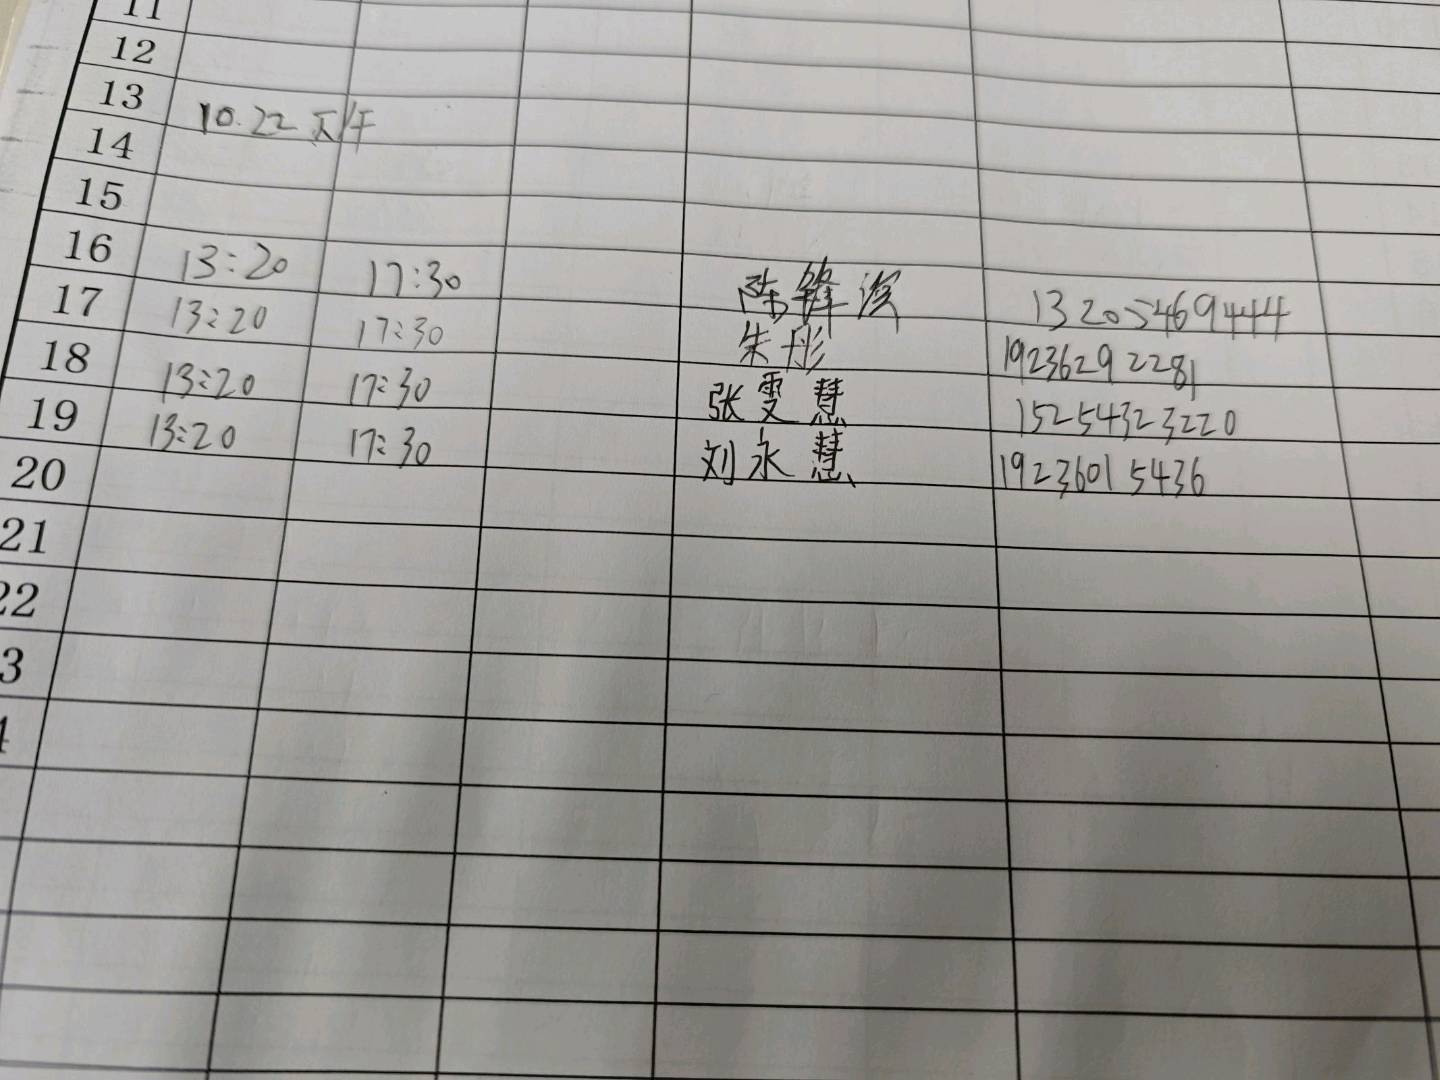 11
12
13 10.22 下午
14
15
16 13:20 17:30 陈锋滨 13205469444
17 13:20 17:30 朱彤 19236292281
18 13:20 17:30 张雯慧 15254323220
19 13:20 17:30 刘永慧 19236015436
20
21
22
3
4